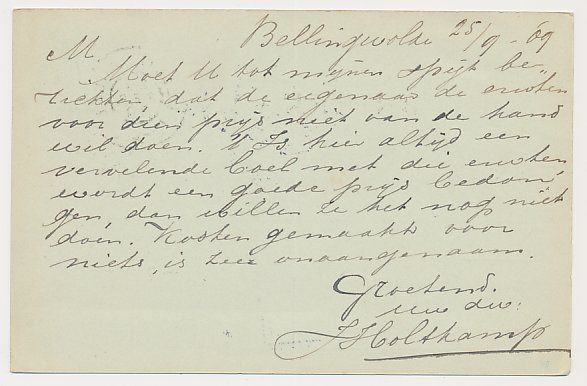 Bellingwolde 25/9 - 09
M.
Moet U tot mijnen spijt be„
richten, dat de eigenaar de erwten
voor dien prijs niet van de hand
wil doen. 't Is hier altijd een
vervelende boel met die erwten
wordt een goede prijs bedon„
gen, dan willen ze het nog niet
doen. Kosten gemaakt voor
niets, is zeer onaangenaam.
Groetend.
Uw dw:
J Holtkamp